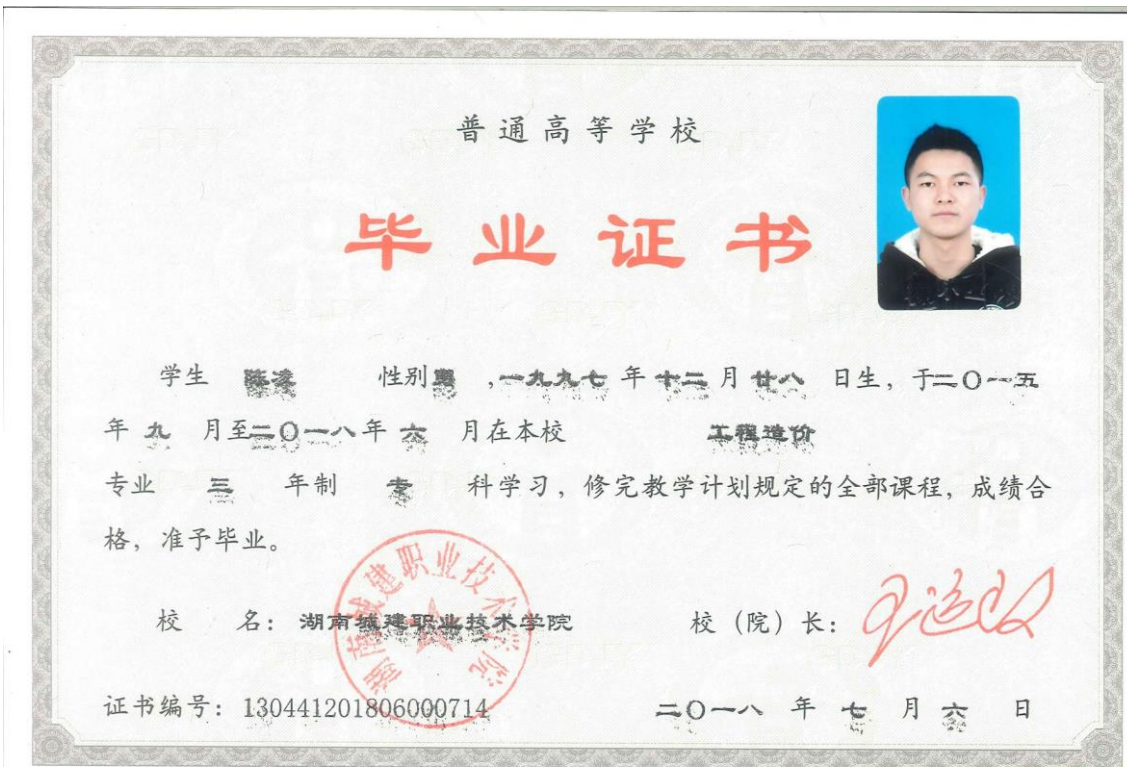 普通高等学校
毕业证书
学生 陈凌 性别男，一九九七年十二月廿八日生，于二〇一五
年九月至二〇一八年六月在本校 工程造价
专业 三 年制 专 科学习，修完教学计划规定的全部课程，成绩合
格，准予毕业。
湖南城建职业技术学院
校 名：湖南城建职业技术学院 校（院）长：
证书编号：130441201806000714 二〇一八年七月六日